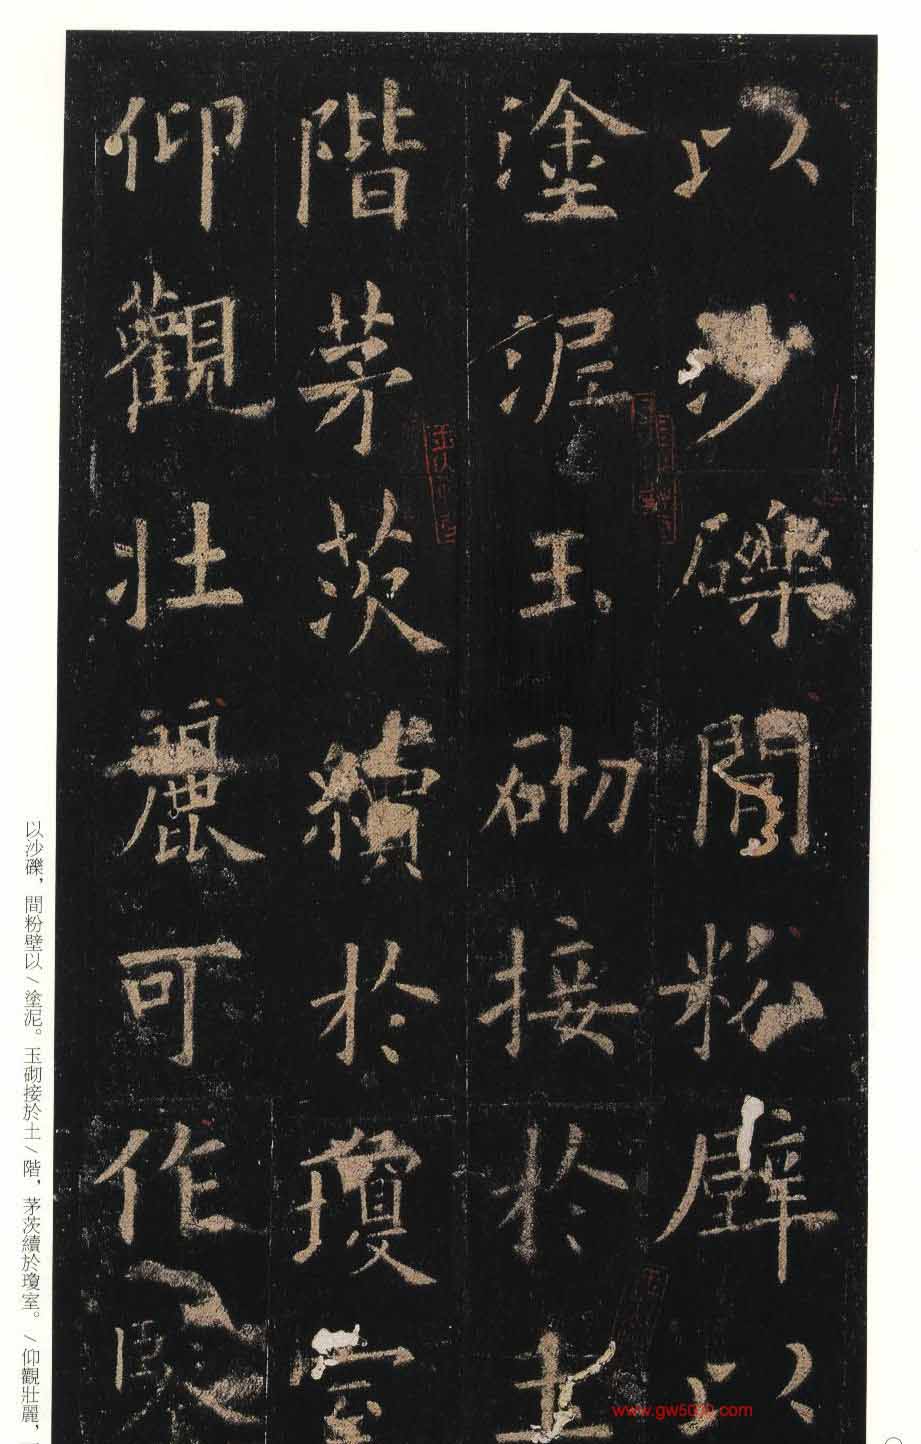 以沙礫間粉壁以
塗泥玉砌接於土
階茅茨續於瓊室
仰觀壯麗可作
以沙礫，間粉壁以/塗泥。玉砌接於土/階，茅茨續於瓊室。/仰觀壯麗，